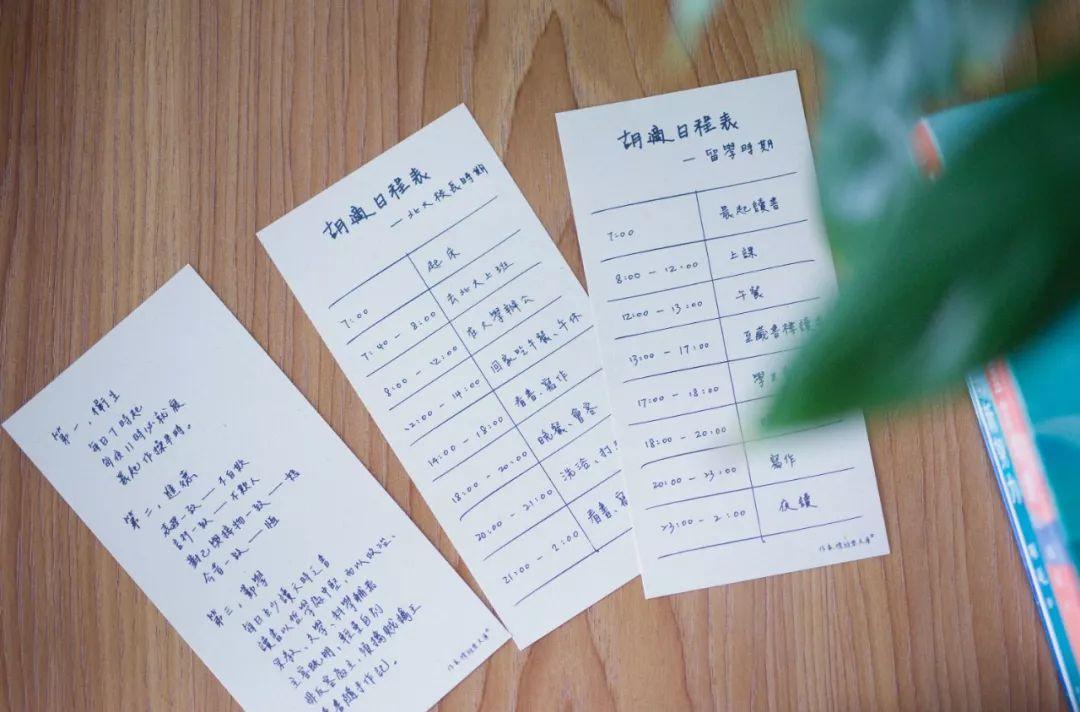 第一，衛生
每日七時起
每夜11時必就寢
晨起作操半時。
第二，進德
表裡一致——不自欺
言行一致——不欺人
對己與接物一致——恕
今昔一致——恆
第三，勤學
每日至少讀六時之書
讀書以哲學為中堅，而以政治、
宗教、文學、科學輔焉
主客既明，輕重自別
毋反客為主，須擒賊擒王
讀書隨手作記。
胡適日程表
—北大校長時期
7:00 起床
7:40 - 8:00 去北大上班
8:00 - 12:00 在大學辦公
12:00 - 14:00 回家吃午餐、午休
14:00 - 18:00 看書、寫作
18:00 - 20:00 晚餐、會客
20:00 - 21:00 洗浴、打
21:00 - 2:00 看書、寫
胡適日程表
—留學時期
7:00 晨起讀書
8:00 - 12:00 上課
12:00 - 13:00 午餐
13:00 - 17:00 至藏書樓讀書
17:00 - 18:00 學
18:00 - 20:00
20:00 - 23:00 寫作
23:00 - 2:00 夜讀